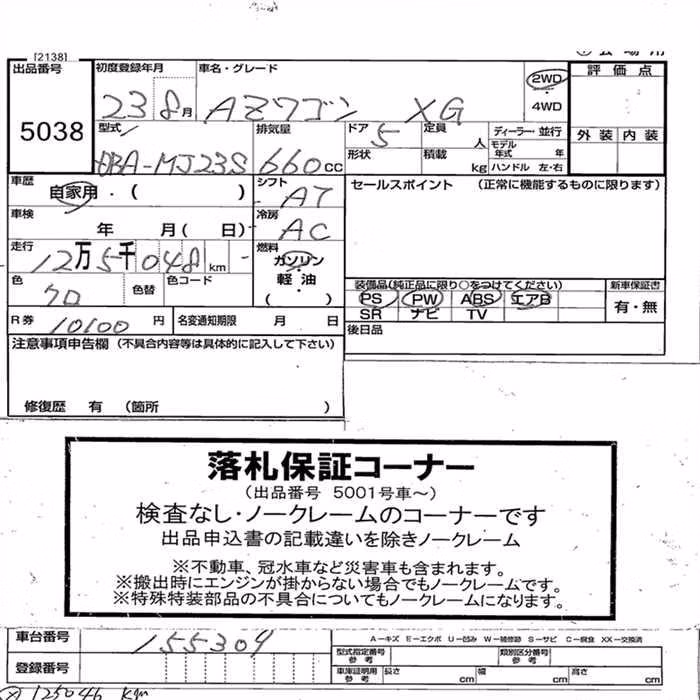 [2138]
出品番号 5038
初度登録年月 23 8月
車名・グレード AZワゴン XG
2WD
4WD
評価点
外装 内装
型式 DBA-MJ23S
排気量 660cc
ドア 5
形状
定員 人
積載 kg
ディーラー・並行
モデル年式 年
ハンドル 左・右
車歴 自家用・( )
シフト AT
セールスポイント (正常に機能するものに限ります)
車検 年 月( 日)
冷房 AC
走行 12万5千048km
燃料 ガソリン・軽油 ( )
色 クロ
色替
色コード
装備品(純正品に限り○をつけてください)
PS PW ABS エアB
SR ナビ TV
新車保証書
有・無
R券 10100 円
名変通知期限 月 日
後日品
注意事項申告欄 (不具合内容等は具体的に記入して下さい)
修復歴 有 (箇所 )
落札保証コーナー
(出品番号 5001号車～)
検査なし・ノークレームのコーナーです
出品申込書の記載違いを除きノークレーム
※不動車、冠水車など災害車も含まれます。
※搬出時にエンジンが掛からない場合でもノークレームです。
※特殊特装部品の不具合についてもノークレームになります。
車台番号 155304
A-キズ E-エクボ U-凹み W-補修跡 S-サビ C-腐食 XX-交換済
型式指定番号 参考
類別区分番号 参考
登録番号
車庫証明用 参考 長さ cm 幅 cm 高さ cm
125046 km